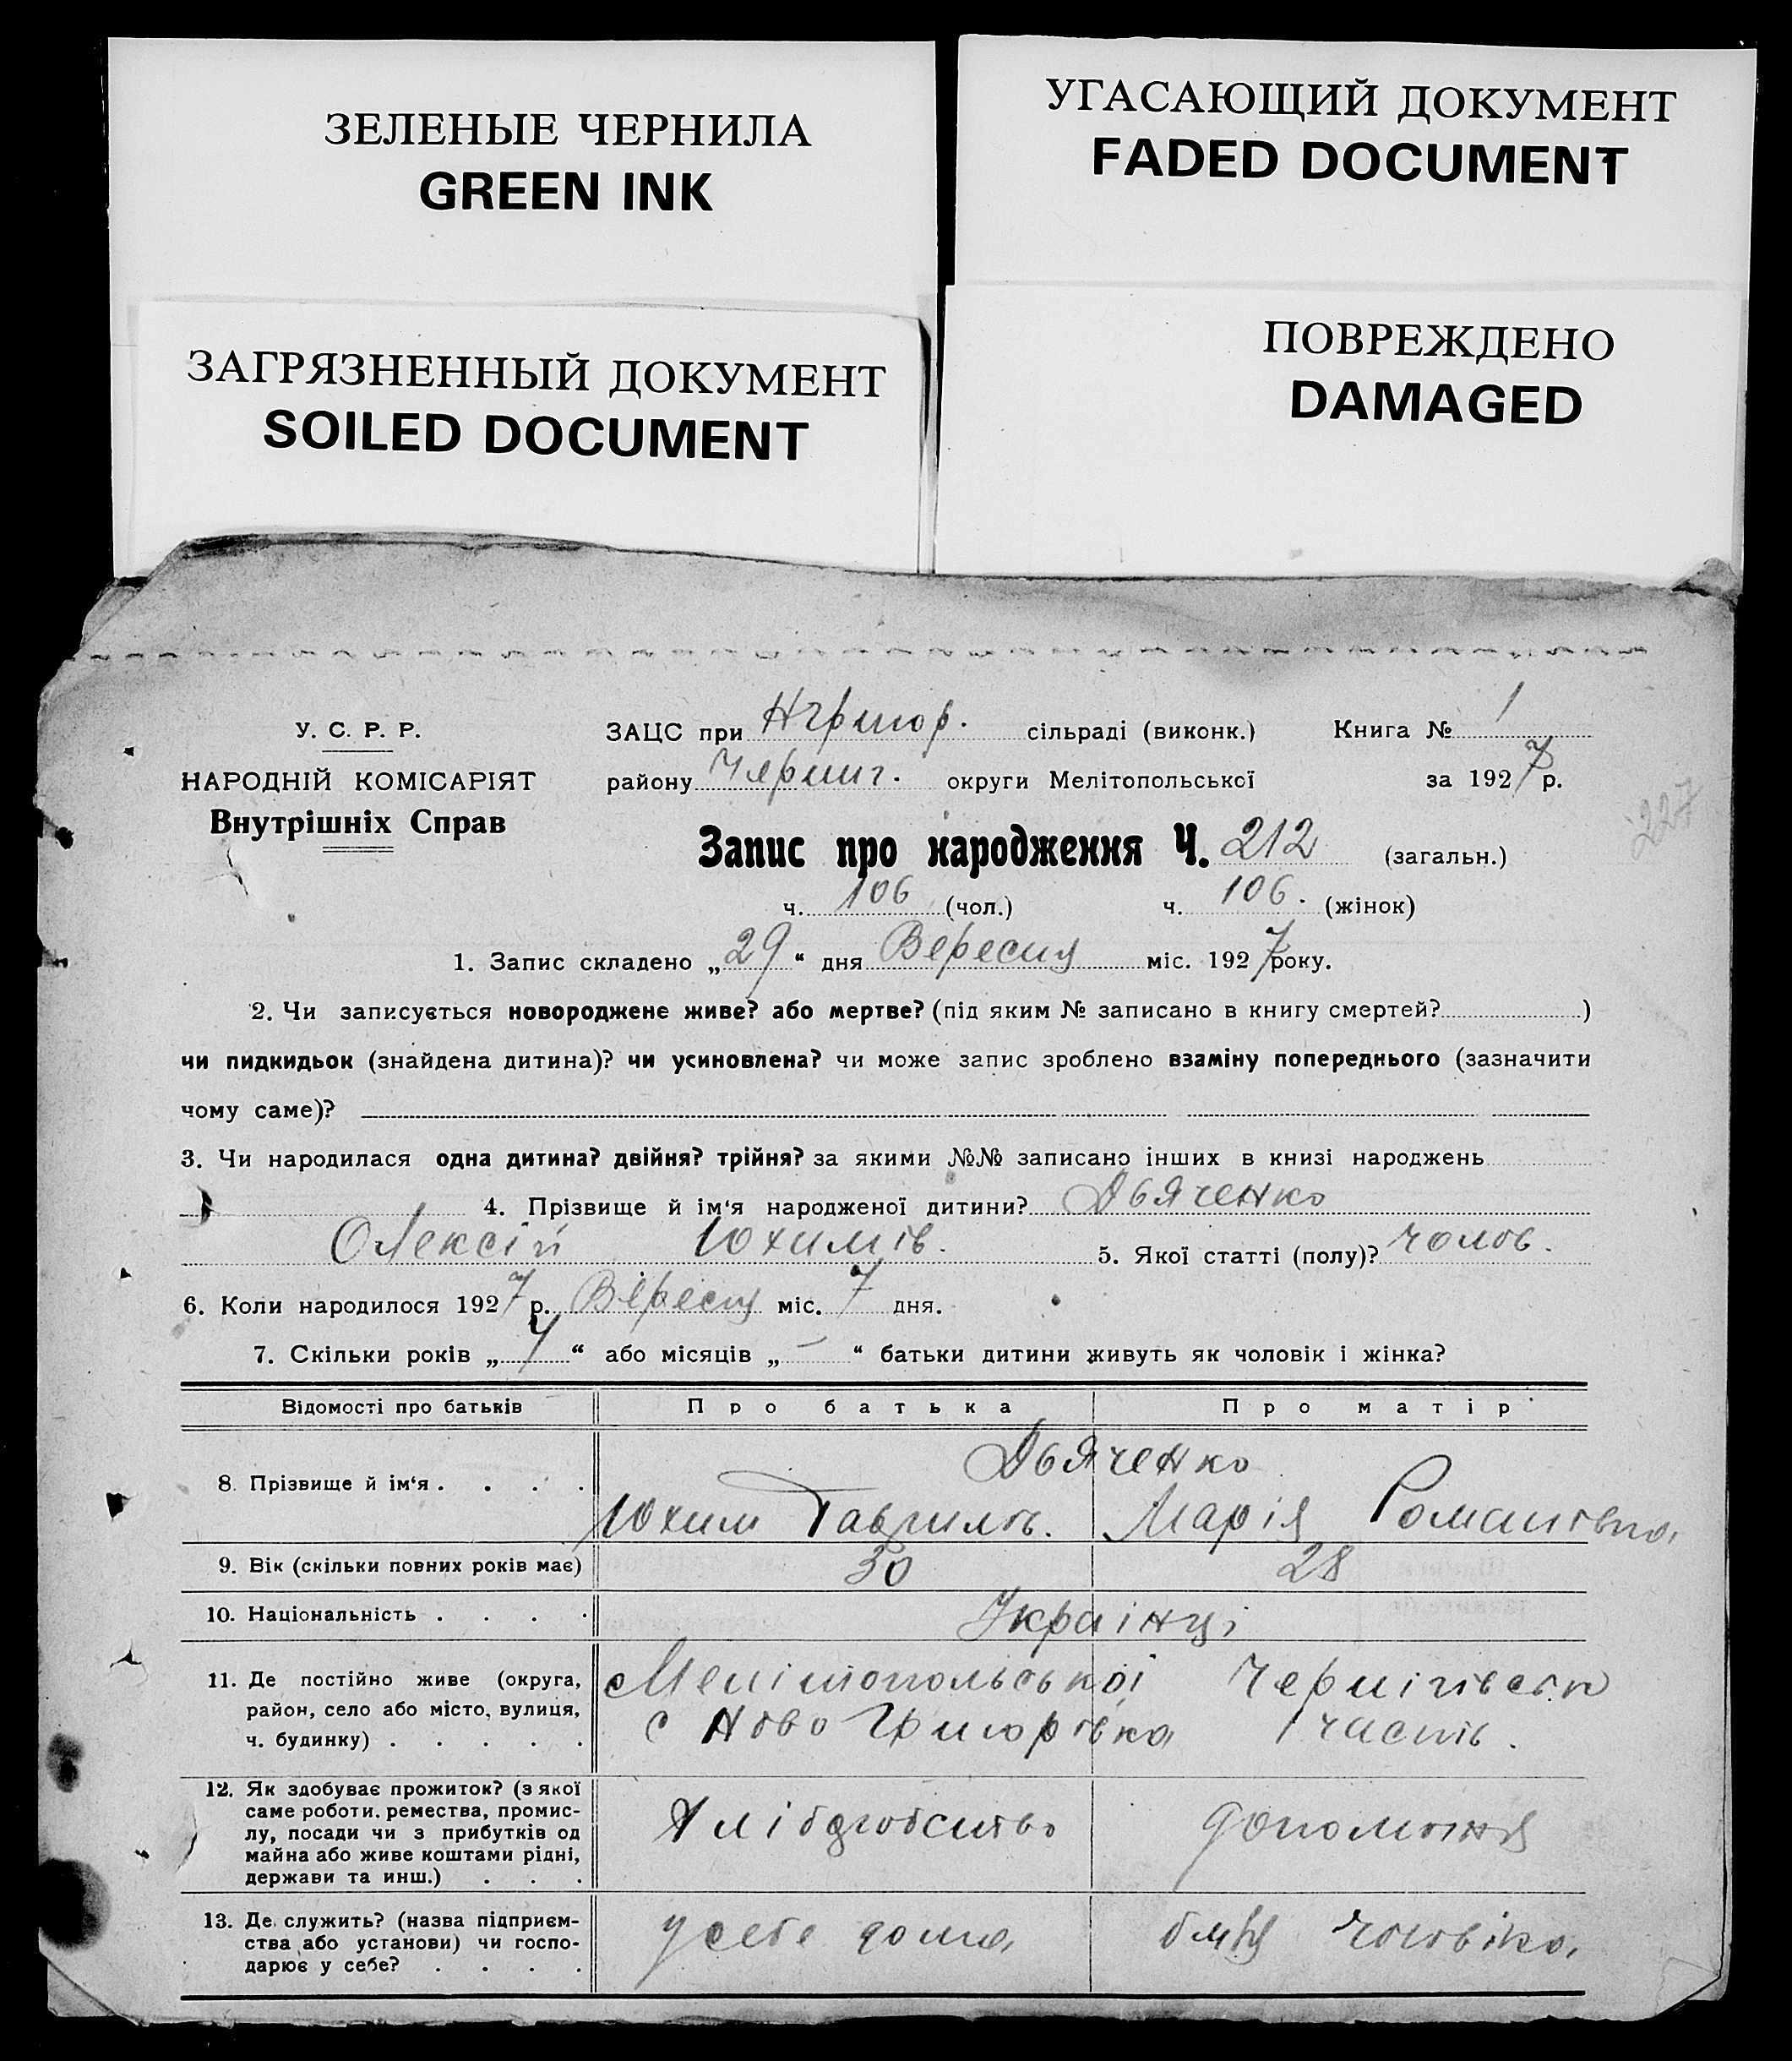 ЗЕЛЕНЫЕ ЧЕРНИЛА
GREEN INK
УГАСАЮЩИЙ ДОКУМЕНТ
FADED DOCUMENT
ЗАГРЯЗНЕННЫЙ ДОКУМЕНТ
SOILED DOCUMENT
ПОВРЕЖДЕНО
DAMAGED
У. С. Р. Р.
НАРОДНІЙ КОМІСАРІЯТ
Внутрішніх Справ
ЗАЦС при Нгригор. сільраді (виконк.) Книга № 1
району Черниг. округи Мелітопольської за 1927 р.
227
Запис про народження Ч. 212 (загальн.)
ч. 106 (чол.) ч. 106. (жінок)
1. Запис складено „29“ дня Вересня міс. 1927 року.
2. Чи записується новороджене живе? або мертве? (під яким № записано в книгу смертей? )
чи пидкидьок (знайдена дитина)? чи усиновлена? чи може запис зроблено взаміну попереднього (зазначити
чому саме)?
3. Чи народилася одна дитина? двійня? трійня? за якими №№ записано інших в книзі народжень
4. Прізвище й ім‘я народженої дитини? Дьяченко
Олексій Юхимів. 5. Якої статті (полу)? чолов.
6. Коли народилося 1927 р. Вересня міс. 7 дня.
7. Скільки років „4“ або місяців „—“ батьки дитини живуть як чоловік і жінка?
Відомості про батьків Про батька Про матір
8. Прізвище й ім‘я . . . . Дьяченко
Юхим Гаврилов. Марія Романівна
9. Вік (скільки повних років має) 30 28
10. Національність . . . . Українці
11. Де постійно живе (округа, район, село або місто, вулиця, ч. будинку) . . . . . Мелітопольської Чернігівськ
с Ново Григорівка 1 часть.
12. Як здобуває прожиток? (з якої
саме роботи. ремества, промис-
лу, посади чи з прибутків од
майна або живе коштами рідні,
держави та инш.) . . .
Хліборобство
13. Де служить? (назва підприєм-
ства або установи) чи госпо-
дарює у себе? . . . .
У себе дома чоловіка